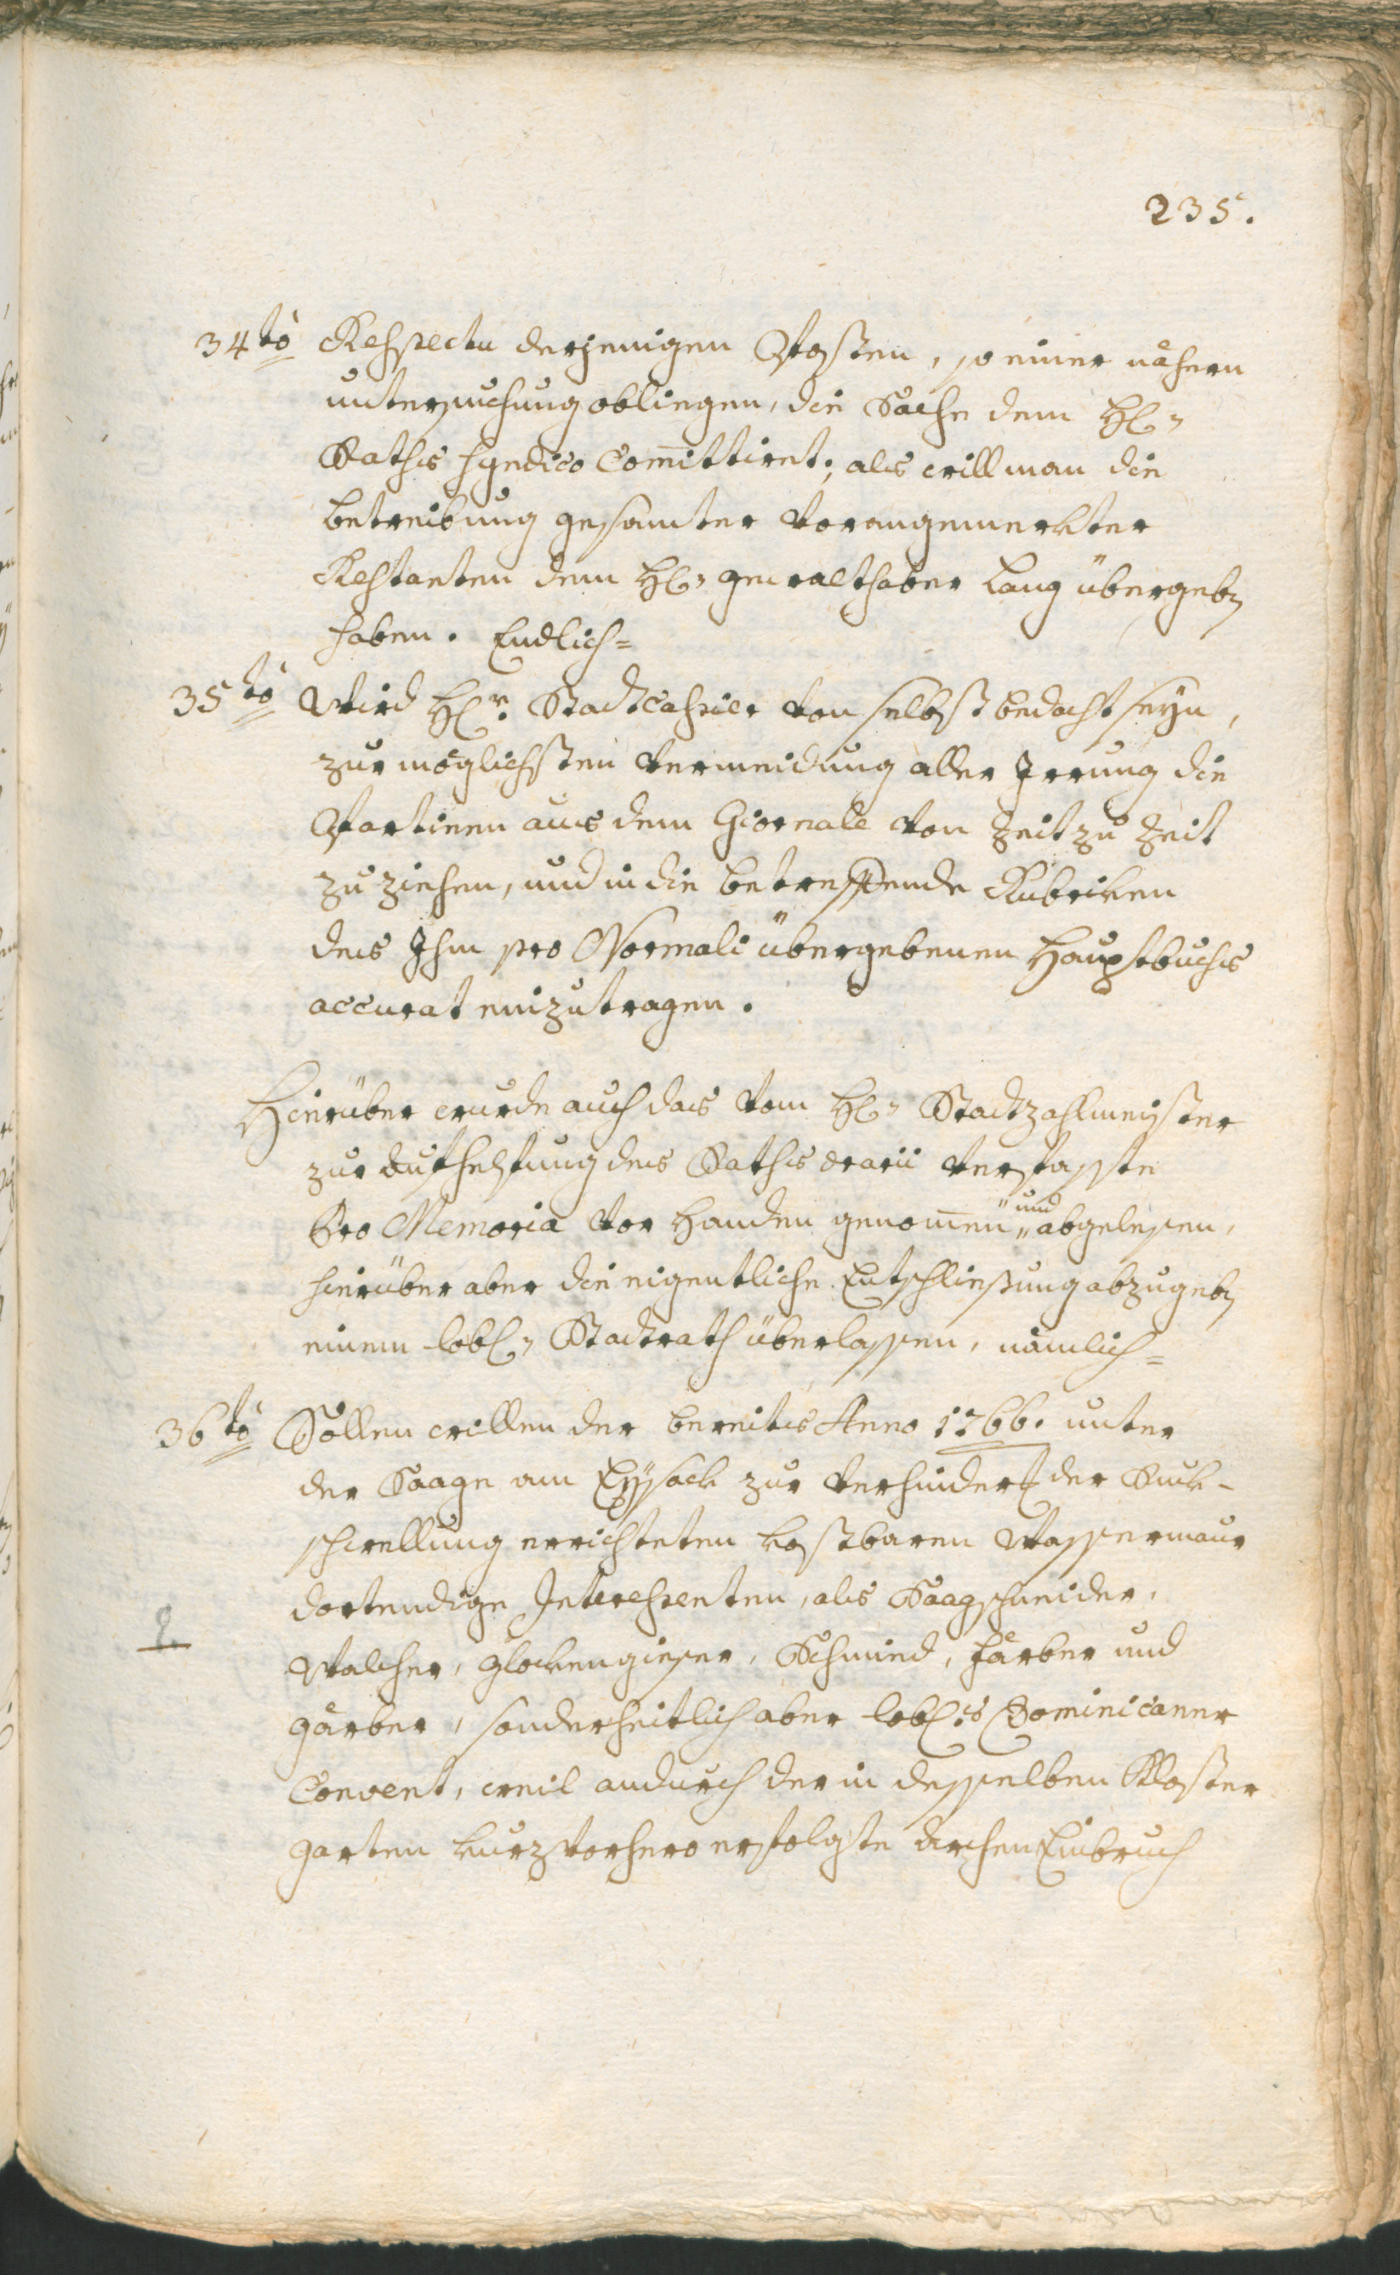 235.
34to Respectu derjenigen Posten, so einer nähern
untersuchung obliegen, die Sache dem H:
Raths Syndico Committirt; als will man die
betreibung gesamter vorangemerkter
Restanten dem H: gewalthaber Lang übergeb[en]
haben. Endlich=
35to Wird H:r Stadtcassier von selbst bedacht seyn,
zur möglichsten vermeidung aller Irrung die
Partien aus dem Giornale von Zeit zu Zeit
zu ziehen, und in die betreffende Rubriken
des Ihm pro Normali übergebenen Hauptbuchs
accurat einzutragen.
Hierüber wurde auch das vom H: Stadtzahlmeister
zur aufhelfung des Raths ærarii verfasste
Pro Memoria vor Handen genom̅en und abgelesen,
hierüber aber die eigentliche Entschließung abzugeb[en]
einem lobl: Stadtrath überlassen, nämlich=
36to Sollen willen der bereits Anno 1766. unter
der Saage am Eysack zur verhinder[ung] der Ruk-
schwellung errichteten kostbaren Wassermaur
dortendige Interessenten, als Saagschneider,
Walcher, Glockengiesser, Schmied, färber und
gärber, sonderheitlich aber lobl:s Dominicaner
Convent, weil andurch der in desselben Kloster
garten kurz vorhero erfolgte Archen Einbruch